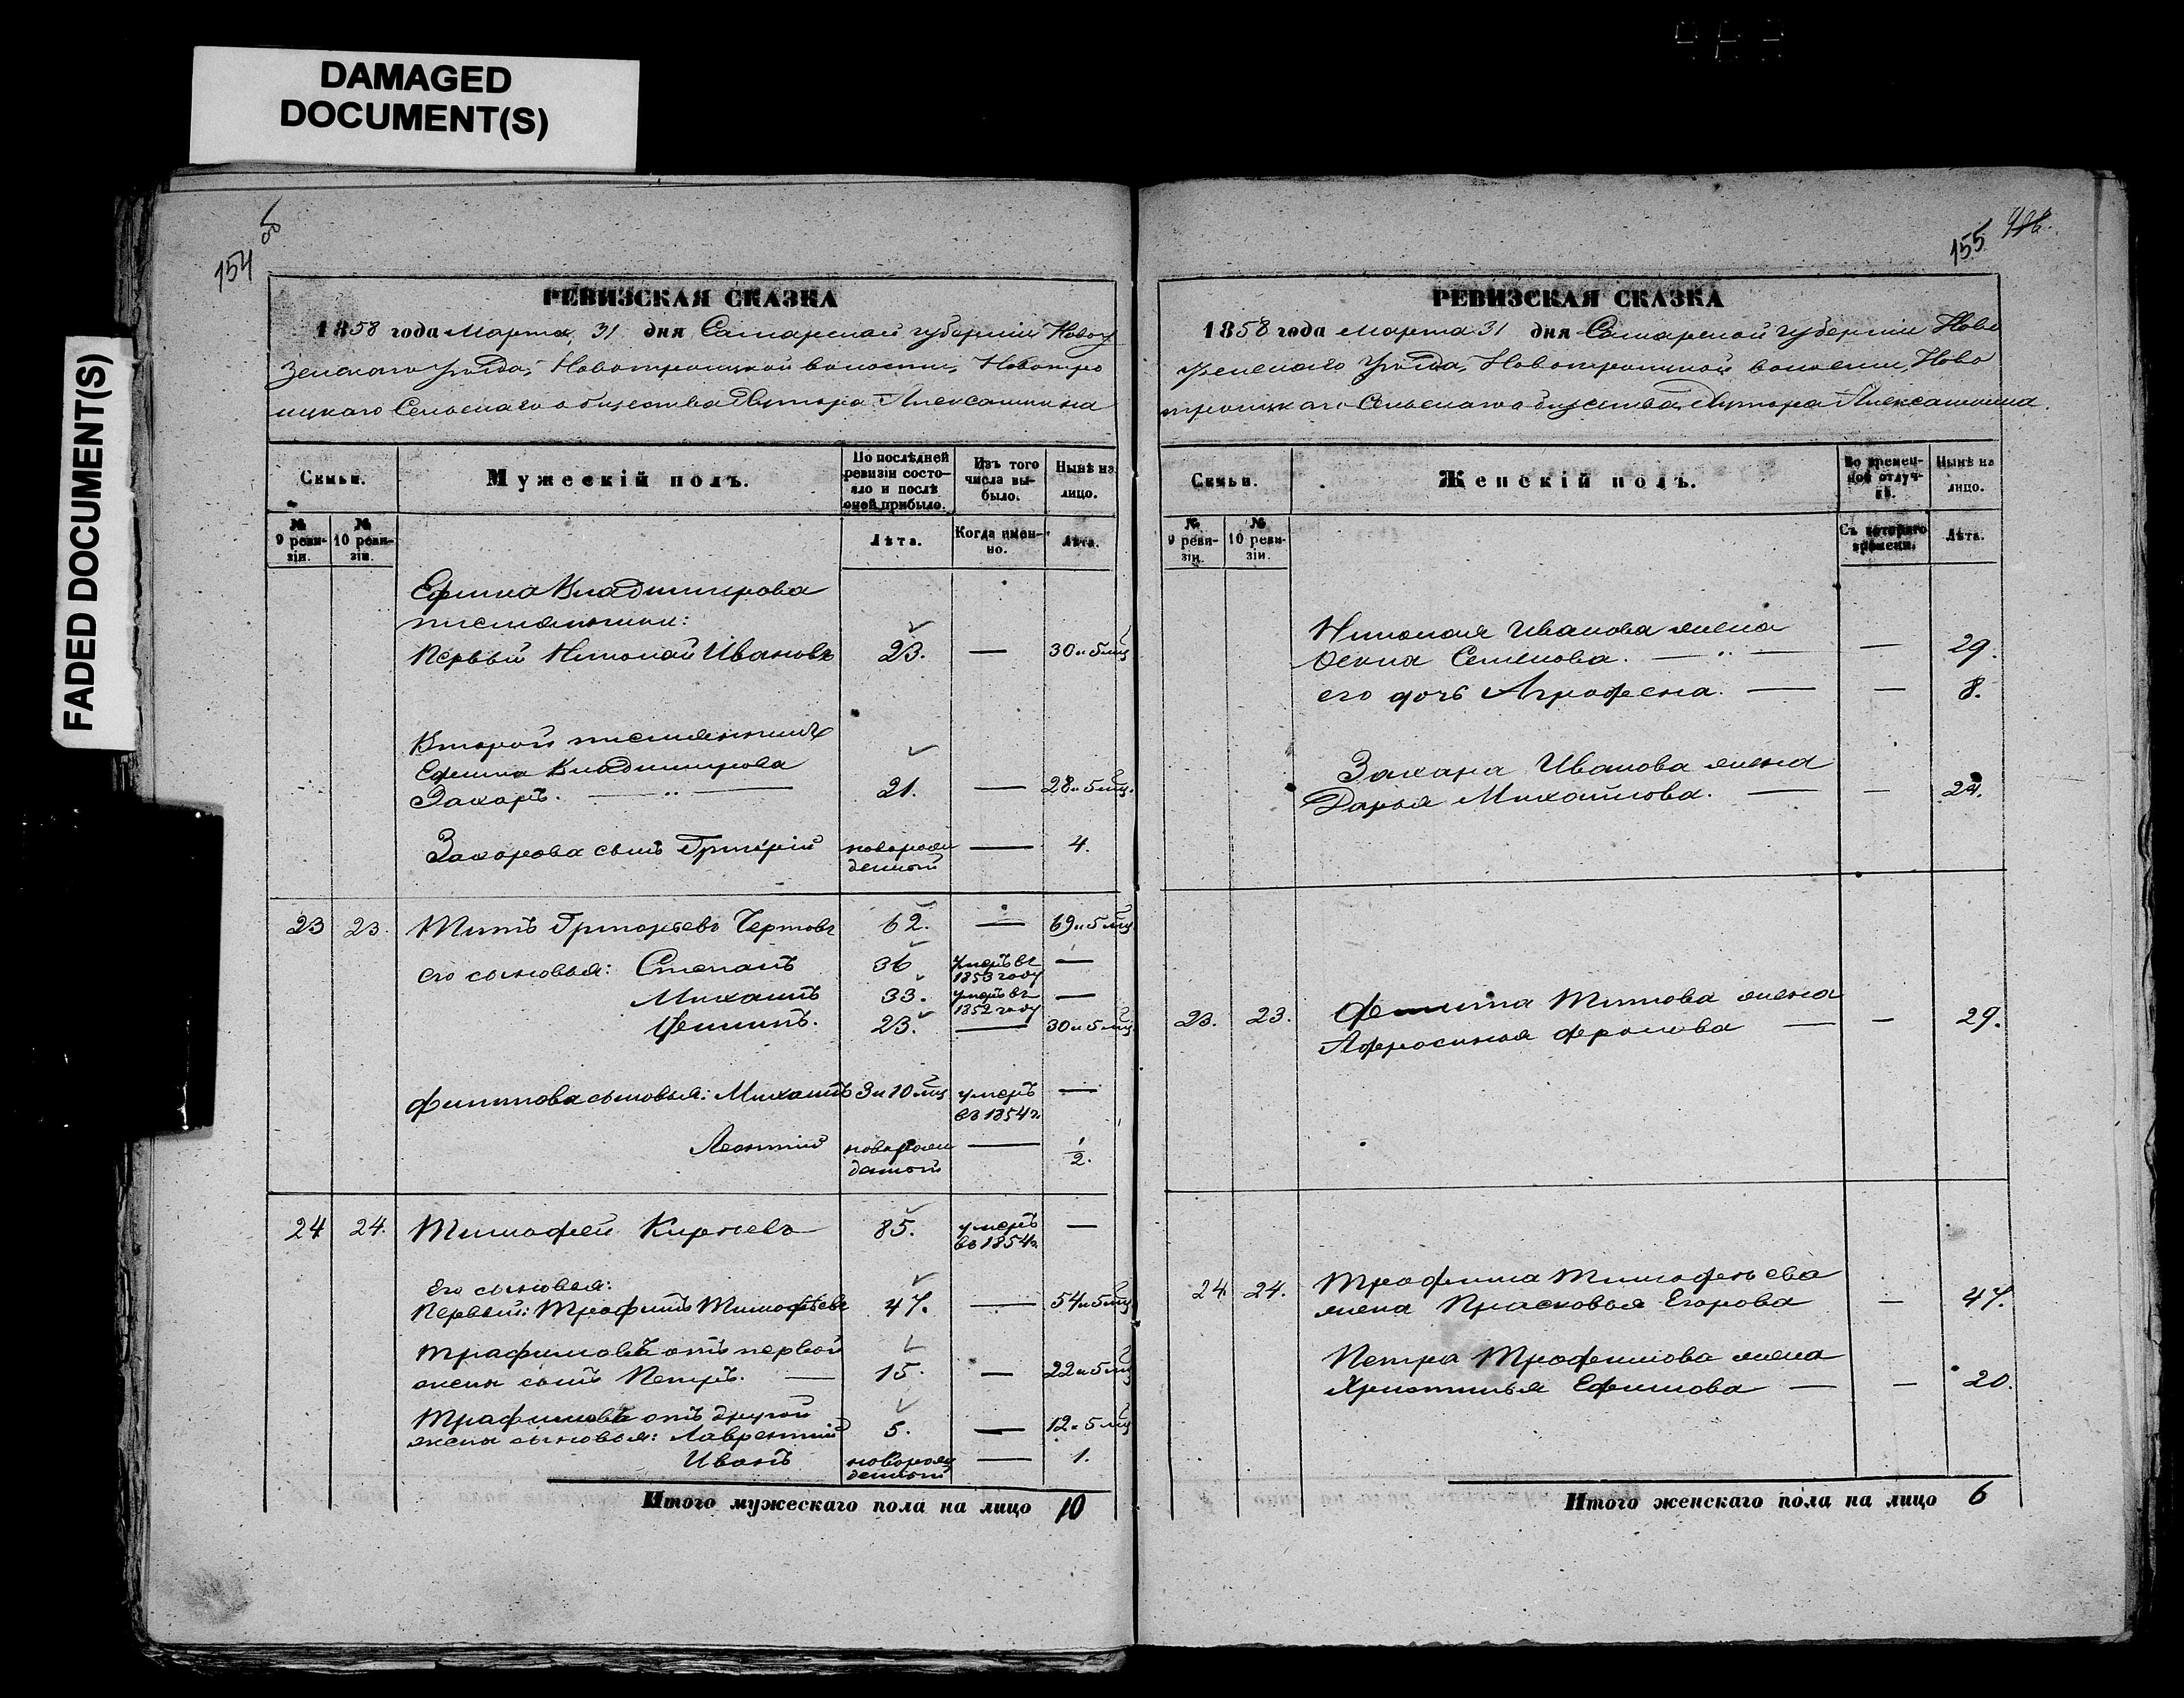 DAMAGED
DOCUMENT(S)
FADED DOCUMENT(S)
154
об
РЕВИЗСКАЯ СКАЗКА
1858 года Марта 31 дня Самарской губерніи Новоу
зенскаго Уѣзда, Новотроицкой волости, Новотро
ицкаго Сельскаго общества Хутора Алексашкина
Семьи.
Мужескій полъ.
По послѣдней ревизіи состо-
яло и послѣ
оной прибыло.
Изъ того
числа вы-
было.
Нынѣ на
лицо.
№
9 реви-
зіи.
№
10 реви-
зіи.
Лѣта.
Когда имен-
но.
Лѣта.
Ефима Владимирова
племянники:
Первый Николай Ивановъ 23. — 30 и 5 мц
Второй племянникъ
Ефима Владимирова
Захаръ. — 21. — 28 и 5 мц.
Захарова сынъ Григорій новорож
денной — 4.
23 23. Титъ Григорьевъ Чертовъ 62. — 69 и 5 мц
его сыновья: Степанъ 36 умеръ въ
1853 году —
Михаилъ 33. умеръ въ
1852 году —
23. — 30 и 5 мц
Филипова сыновья: Михаилъ 3 и 10 мц умеръ
въ 1854 г. —
Леонтій новорож
денной — 1/2.
24 24. Тимофей Кирѣевъ 85. умеръ
въ 1854 г. —
Его сыновья:
Первый: Трафимъ Тимофѣевъ 47. — 54 и 5 мц
Трафимова отъ первой
жены сынъ Петръ. — 15. — 22 и 5 мц
Трафимова отъ другой
жены сыновья: Лаврентій 5. — 12 и 5 мц
Иванъ новорож
денной — 1.
Итого мужескаго пола на лицо 10
155
РЕВИЗСКАЯ СКАЗКА
1858 года Марта 31 дня Самарской губерніи Ново
узенскаго Уѣзда, Новотроицкой волости, Ново
троицкаго Сельскаго общества, Хутора Алексашкина.
Семьи.
Женскій полъ.
Во времен-
ной отлуч-
кѣ.
Нынѣ на
лицо.
№
9 реви-
зіи.
№
10 реви-
зіи.
Съ котораго
времени.
Лѣта.
Николая Иванова жена
Семенова. — — 29.
его дочь Аграфена. — — 8.
Захара Иванова жена
Дарья Михайлова. — —
23. 23. Титова жена
Афросинья Фролова — — 29.
24 24. Трофима Тимофеева
жена Прасковья Егорова — 47.
Петра Трофимова жена
Христинья Ефимова — — 20.
Итого женскаго пола на лицо 6